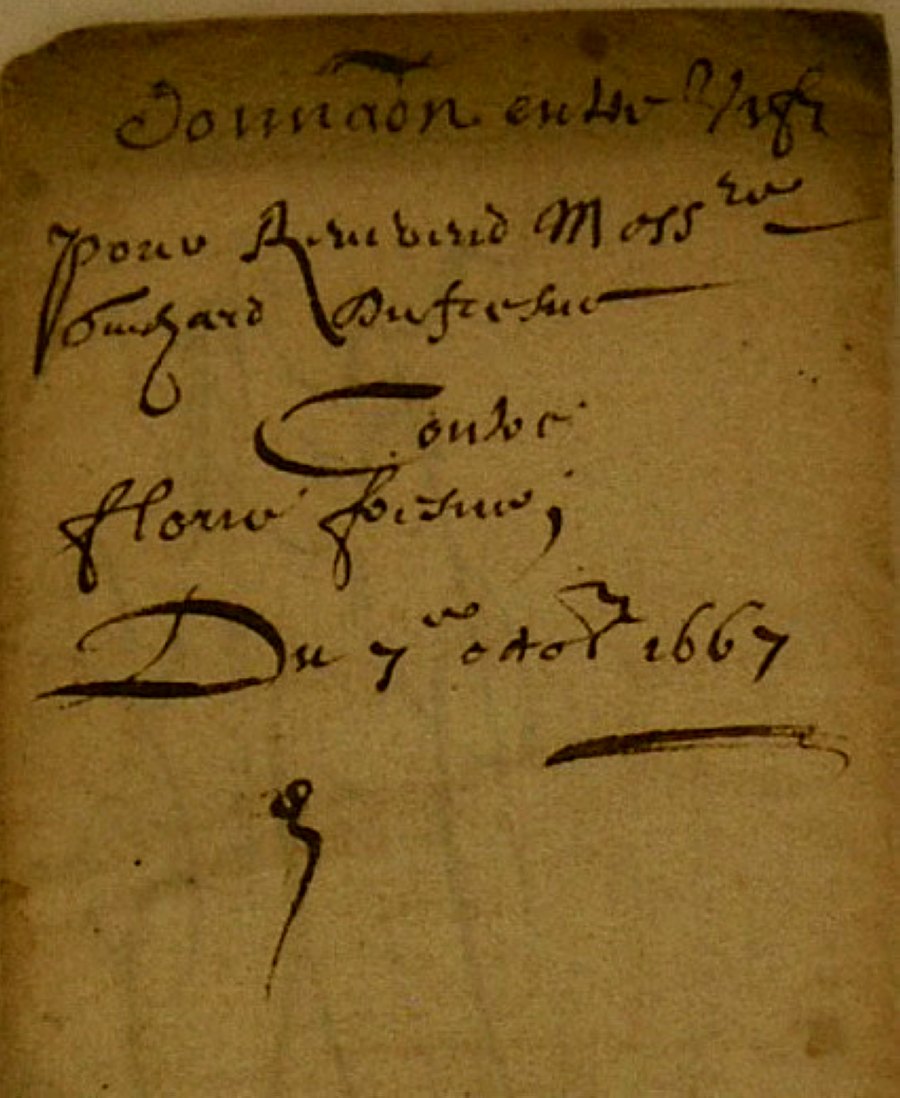 Donnaôn entre vifz
Pour Reverend Moss re
Guichard Dufresne
Contre
florie fresne;
Du 7e octob 1667